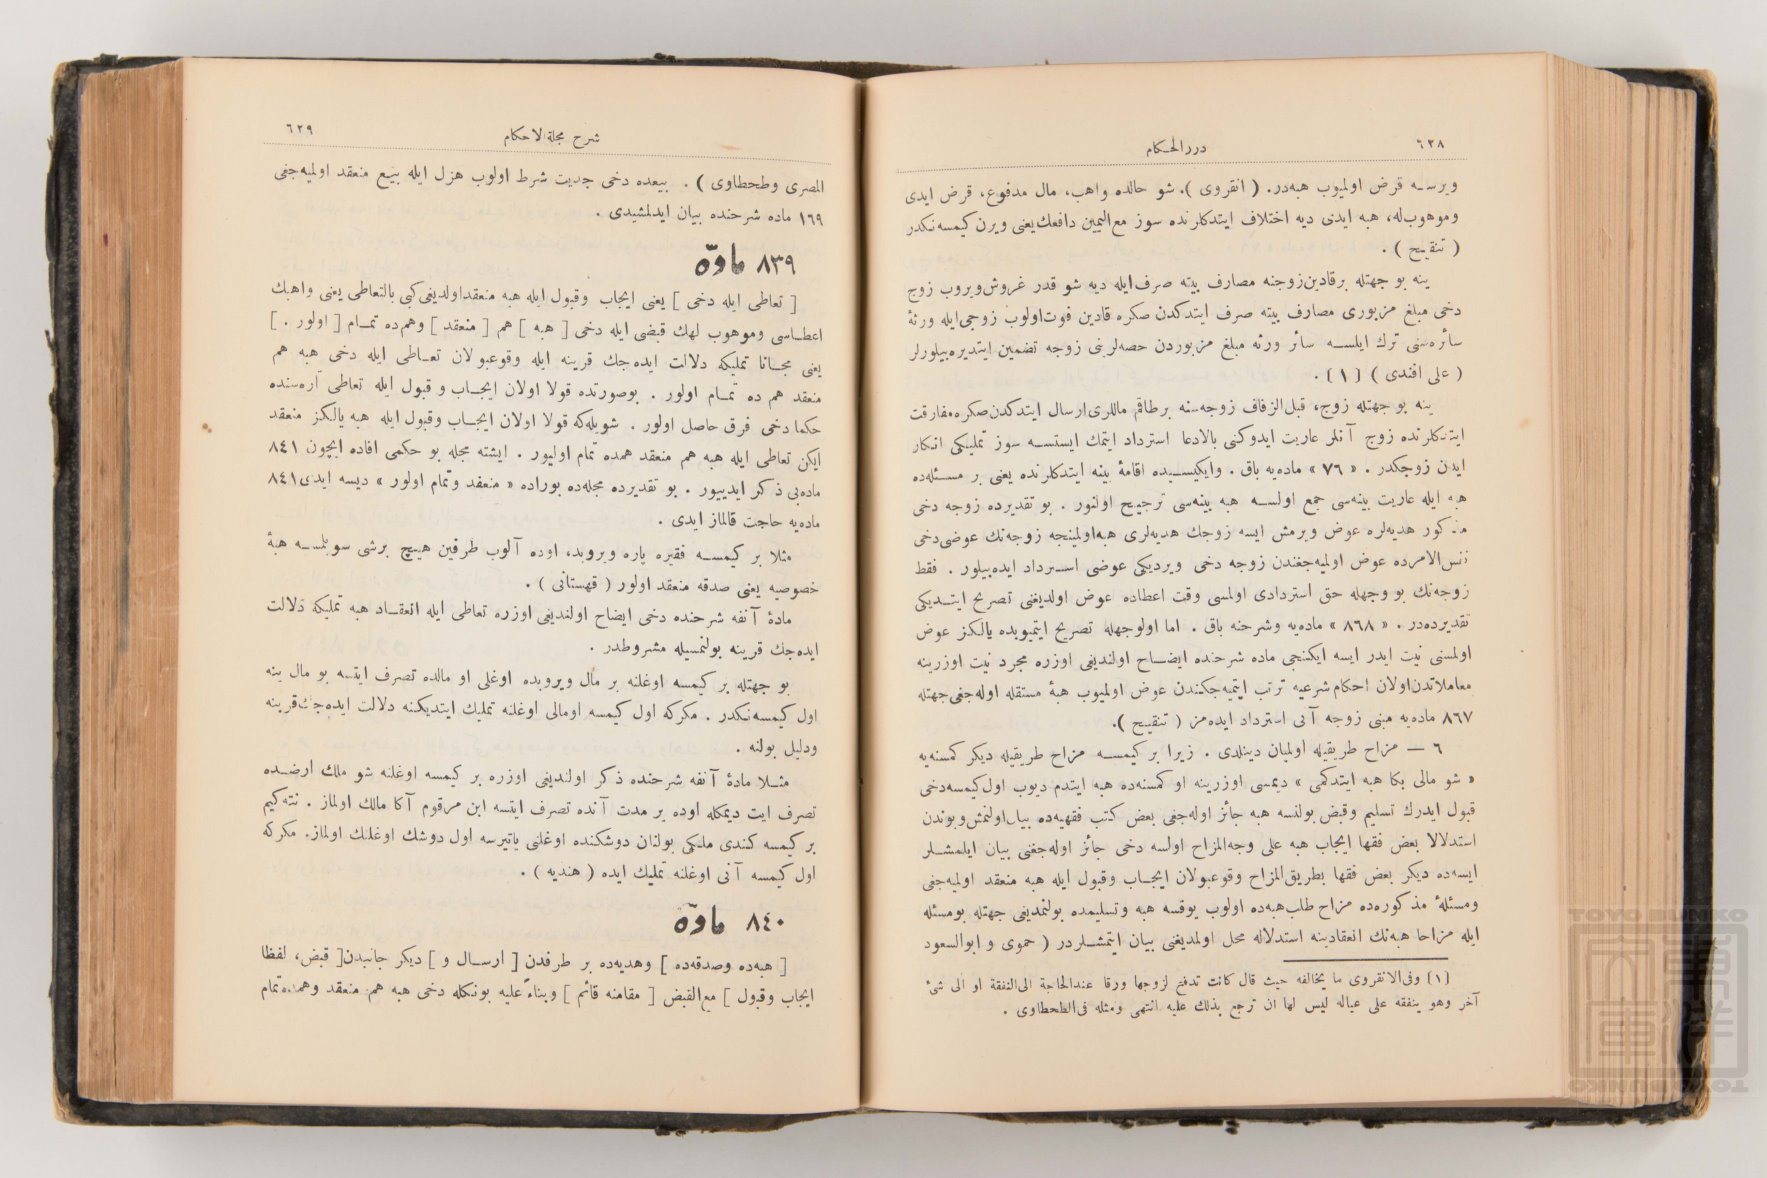 ٦٢٨
دررالحكام
ويرسه قرض اولميوب هبه‌در. ( انقروى ). شو حالده واهب، مال مدفوع، قرض ايدى
وموهوب‌له، هبه ايدى ديه اختلاف ايتدكلرنده سوز مع‌اليمين دافعك يعنى ويرن كيمسه‌نكدر
( تنقيح ) .
ينه بو جهتله برقادين زوجنه مصارف بيته صرف‌ايله ديه شو قدر غروش ويروب زوج
دخى مبلغ مزبورى مصارف بيته صرف ايتدكدن صكره قادين فوت‌اولوب زوجى‌ايله ورثهٔ
سائره‌سنى ترك ايلسه سائر ورثه مبلغ مزبوردن حصه‌لرينى زوجه تضمين ايتديره‌بيلورلر
( على افندى ) [ ١ ] .
ينه بو جهتله زوج، قبل‌الزفاف زوجه‌سنه برطاقم ماللرى ارسال ايتدكدن صكره مفارقت
ايتدكلرنده زوج آنلر عاريت ايدوكنى بالادعا استرداد ايتمك ايستسه سوز تمليكى انكار
ايدن زوجكدر . « ٧٦ » ماده‌يه باق . وايكيسيده اقامهٔ بينه ايتدكلرنده يعنى بر مسئله‌ده
هبه ايله عاريت بينه‌سى جمع اولسه هبه بينه‌سى ترجيح اولنور . بو تقديرده زوجه دخى
مذكور هديه‌لره عوض ويرمش ايسه زوجك هديه‌لرى هبه‌اولمينجه زوجه‌نك عوضى‌دخى
نفس‌الامرده عوض اوليه‌جغندن زوجه دخى ويرديكى عوضى استرداد ايده‌بيلور . فقط
زوجه‌نك بو وجهله حق استردادى اولمسى وقت اعطاده عوض اولديغنى تصريح ايتديكى
تقديرده‌در . « ٨٦٨ » ماده‌يه وشرحنه باق . اما اولوجهله تصريح ايتميوبده يالكز عوض
اولمسنى نيت ايدر ايسه ايكنجى ماده شرحنده ايضاح اولنديغى اوزره مجرد نيت اوزرينه
معاملاتدن‌اولان احكام شرعيه ترتب ايتميه‌جكندن عوض اولميوب هبهٔ مستقله اوله‌جغى جهتله
٨٦٧ ماده‌يه مبنى زوجه آنى استرداد ايده‌مز ( تنقيح ).
٦ — مزاح طريقيله اولميان دينلدى . زيرا بر كيمسه مزاح طريقيله ديكر كمسنه‌يه
« شو مالى بكا هبه ايتدكمى » ديمسى اوزرينه او كمسنه‌ده هبه ايتدم ديوب اول‌كيمسه‌دخى
قبول ايدرك تسليم وقبض بولنسه هبه جائز اوله‌جغى بعض كتب فقهيه‌ده بيان‌اولنمش‌وبوندن
استدلالا بعض فقها ايجاب هبه على وجه‌المزاح اولسه دخى جائز اوله‌جغنى بيان ايلمشلر
ايسه‌ده ديكر بعض فقها بطريق‌المزاح وقوعبولان ايجاب وقبول ايله هبه منعقد اوليه‌جغى
ومسئلهٔ مذكوره‌ده مزاح طلب هبه‌ده اولوب يوقسه هبه وتسليمده بولنمديغى جهتله بومسئله
ايله مزاحا هبه‌نك انعقادينه استدلاله محل اولمديغنى بيان ايتمشلردر ( حموى و ابوالسعود
[١] وفى‌الانقروى ما يخالفه حيث قال كانت تدفع لزوجها ورقا عندالحاجة الى‌النفقة او الى شئ
آخر وهو ينفقه على عياله ليس لها ان ترجع بذلك عليه انتهى ومثله فى‌الطحطاوى .
شرح مجلة‌الاحكام
٦٢٩
المصرى وطحطاوى ) . بيعده دخى جديت شرط اولوب هزل ايله بيع منعقد اوليه‌جغى
١٦٩ ماده شرحنده بيان ايدلمشيدى .
٨٣٩ مادّه
[ تعاطى ايله دخى ] يعنى ايجاب وقبول ايله هبه منعقداولديغى‌كبى بالتعاطى يعنى واهبك
اعطاسى وموهوب لهك قبضى ايله دخى [ هبه ] هم [ منعقد ] وهم‌ده تمام [ اولور . ]
يعنى مجانا تمليكه دلالت ايده‌جك قرينه ايله وقوعبولان تعاطى ايله دخى هبه هم
منعقد هم ده تمام اولور . بوصورتده قولا اولان ايجاب و قبول ايله تعاطى آره‌سنده
حكما دخى فرق حاصل اولور . شويله‌كه قولا اولان ايجاب وقبول ايله هبه يالكز منعقد
ايكن تعاطى ايله هبه هم منعقد همده تمام اوليور . ايشته مجله بو حكمى افاده ايچون ٨٤١
ماده‌يى ذكر ايدييور . بو تقديرده مجله‌ده بوراده « منعقد وتمام اولور » ديسه ايدى ٨٤١
ماده‌يه حاجت قالماز ايدى .
مثلا بر كيمسه فقيره پاره ويروبد، اوده آلوب طرفين هيچ برشى سويلمسه هبهٔ
خصوصيه يعنى صدقه منعقد اولور ( قهستانى ) .
مادهٔ آنفه شرحنده دخى ايضاح اولنديغى اوزره تعاطى ايله انعقاد هبه تمليكه دلالت
ايده‌جك قرينه بولنمسيله مشروطدر .
بو جهتله بر كيمسه اوغلنه بر مال ويروبده اوغلى او مالده تصرف ايتسه بو مال ينه
اول كيمسه‌نكدر . مكركه اول كيمسه اومالى اوغلنه تمليك ايتديكنه دلالت ايده‌جك‌قرينه
ودليل بولنه .
مثلا مادهٔ آنفه شرحنده ذكر اولنديغى اوزره بر كيمسه اوغلنه شو ملك ارضده
تصرف ايت ديمكله اوده بر مدت آنده تصرف ايتسه ابن مرقوم آكا مالك اولماز . نته‌كيم
بر كيمسه كندى ملكى بولنان دوشكنده اوغلنى ياتيرسه اول دوشك اوغلنك اولماز. مكركه
اول كيمسه آنى اوغلنه تمليك ايده ( هنديه ) .
٨٤٠ مادّه
[ هبه‌ده وصدقه‌ده ] وهديه‌ده بر طرفدن [ ارسال و ] ديكر جانبدن[ قبض، لفظا
ايجاب وقبول ] مع‌القبض [ مقامنه قائم ] وبناءً عليه بونكله دخى هبه هم منعقد وهمده‌تمام
TOYO BUNKO